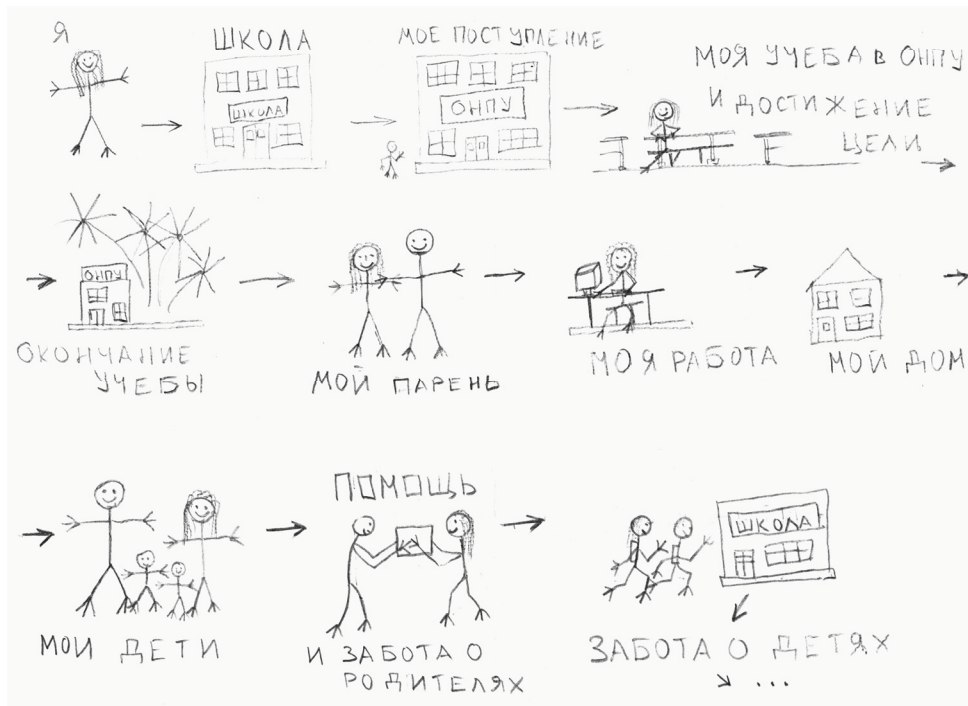 Я
ШКОЛА
ШКОЛА
МОЕ ПОСТУПЛЕНИЕ
ОНПУ
МОЯ УЧЕБА в ОНПУ
И ДОСТИЖЕНИЕ
ЦЕЛИ
ОНПУ
ОКОНЧАНИЕ
УЧЕБЫ
МОЙ ПАРЕНЬ
МОЯ РАБОТА
МОЙ ДОМ
МОИ ДЕТИ
ПОМОЩЬ
И ЗАБОТА О
РОДИТЕЛЯХ
ШКОЛА
ЗАБОТА О ДЕТЯХ
...